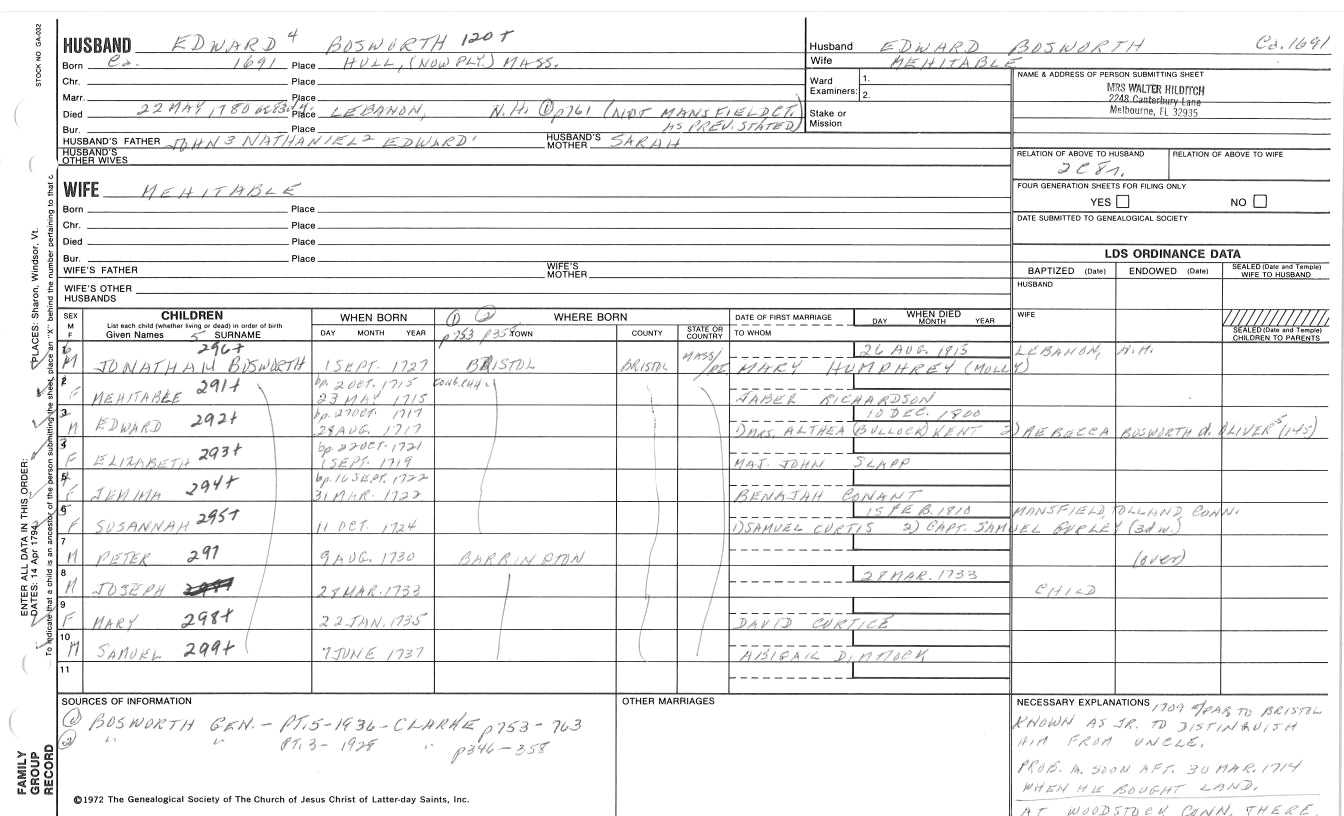 STOCK NO GA-032
HUSBAND EDWARD 4 BOSWORTH 120+
Born Ca. 1691 Place HULL, (NOW PLY.) MASS.
Chr. Place
Marr. Place
Died 22 MAY, 1780 Place LEBANON, N.H. ① p761 (NOT MANSFIELD CT.
Bur. Place AS PREV. STATED)
HUSBAND'S FATHER JOHN 3 NATHANIEL 2 EDWARD 1 HUSBAND'S MOTHER SARAH
HUSBAND'S OTHER WIVES
Husband EDWARD BOSWORTH Ca. 1691
Wife MEHITABLE
Ward Examiners: 1.
2.
Stake or Mission
NAME & ADDRESS OF PERSON SUBMITTING SHEET
MRS WALTER HILDITCH
2248 Canterbury Lane
Melbourne, FL 32935
RELATION OF ABOVE TO HUSBAND RELATION OF ABOVE TO WIFE
2C8r.
FOUR GENERATION SHEETS FOR FILING ONLY
YES NO
DATE SUBMITTED TO GENEALOGICAL SOCIETY
WIFE MEHITABLE
Born Place
Chr. Place
Died Place
Bur. Place
WIFE'S FATHER WIFE'S MOTHER
WIFE'S OTHER HUSBANDS
LDS ORDINANCE DATA
BAPTIZED (Date) ENDOWED (Date) SEALED (Date and Temple) WIFE TO HUSBAND
HUSBAND
WIFE
SEALED (Date and Temple) CHILDREN TO PARENTS
SEX M F CHILDREN WHEN BORN ① ② WHERE BORN DATE OF FIRST MARRIAGE WHEN DIED
List each child (whether living or dead) in order of birth
Given Names 5 SURNAME DAY MONTH YEAR p753 p355 TOWN COUNTY STATE OR COUNTRY TO WHOM DAY MONTH YEAR
6 M JONATHAN BOSWORTH 296+ 1 SEPT. 1727 BRISTOL BRISTOL MASS/RI 26 AUG. 1815 LEBANON, N.H.
MARY HUMPHREY (MOLLY)
2 F MEHITABLE 291+ bp. 2 OCT. 1715 CONG. CHH.
23 MAY 1715 JABER RICHARDSON
3 M EDWARD 292+ bp. 27 OCT. 1717 10 DEC. 1800
28 AUG. 1717 1) MRS. ALTHEA (BULLOCK) KENT 2) REBECCA BOSWORTH d. OLIVER 5 (145)
F ELIZABETH 293+ bp. 22 OCT. 1721
1 SEPT. 1719 MAJ. JOHN SLAPP
F JEMIMA 294+ bp. 16 SEPT. 1722
31 MAR. 1722 BENAJAH CONANT
F SUSANNAH 295+ 11 OCT. 1724 15 FEB. 1810 MANSFIELD, TOLLAND, CONN.
1) SAMUEL CURTIS 2) CAPT. SAMUEL GURLEY (3d w.)
7 M PETER 297 9 AUG. 1730 BARRINGTON (over)
8 M JOSEPH 28 MAR. 1733 28 MAR. 1733 CHILD
9 F MARY 298+ 22 JAN. 1735 DAVID CURTICE
10 M SAMUEL 299+ 7 JUNE 1737 ABIGAIL DIMMOCK
11
SOURCES OF INFORMATION
① BOSWORTH GEN. - PT. 5 - 1936 - CLARKE p753 - 763
② " " PT. 3 - 1928 " p346 - 358
OTHER MARRIAGES
NECESSARY EXPLANATIONS 1709 PAR TO BRISTOL
KNOWN AS JR. TO DISTINGUISH
HIM FROM UNCLE.
PROB. M. SOON AFT. 30 MAR. 1714
WHEN HE BOUGHT LAND.
AT WOODSTOCK CONN. THERE.
©1972 The Genealogical Society of The Church of Jesus Christ of Latter-day Saints, Inc.
FAMILY GROUP RECORD
ENTER ALL DATA IN THIS ORDER:
DATES: 14 Apr 1794 PLACES: Sharon, Windsor, Vt.
To indicate that a child is an ancestor of the person submitting the sheet, place an "X" behind the number pertaining to that c